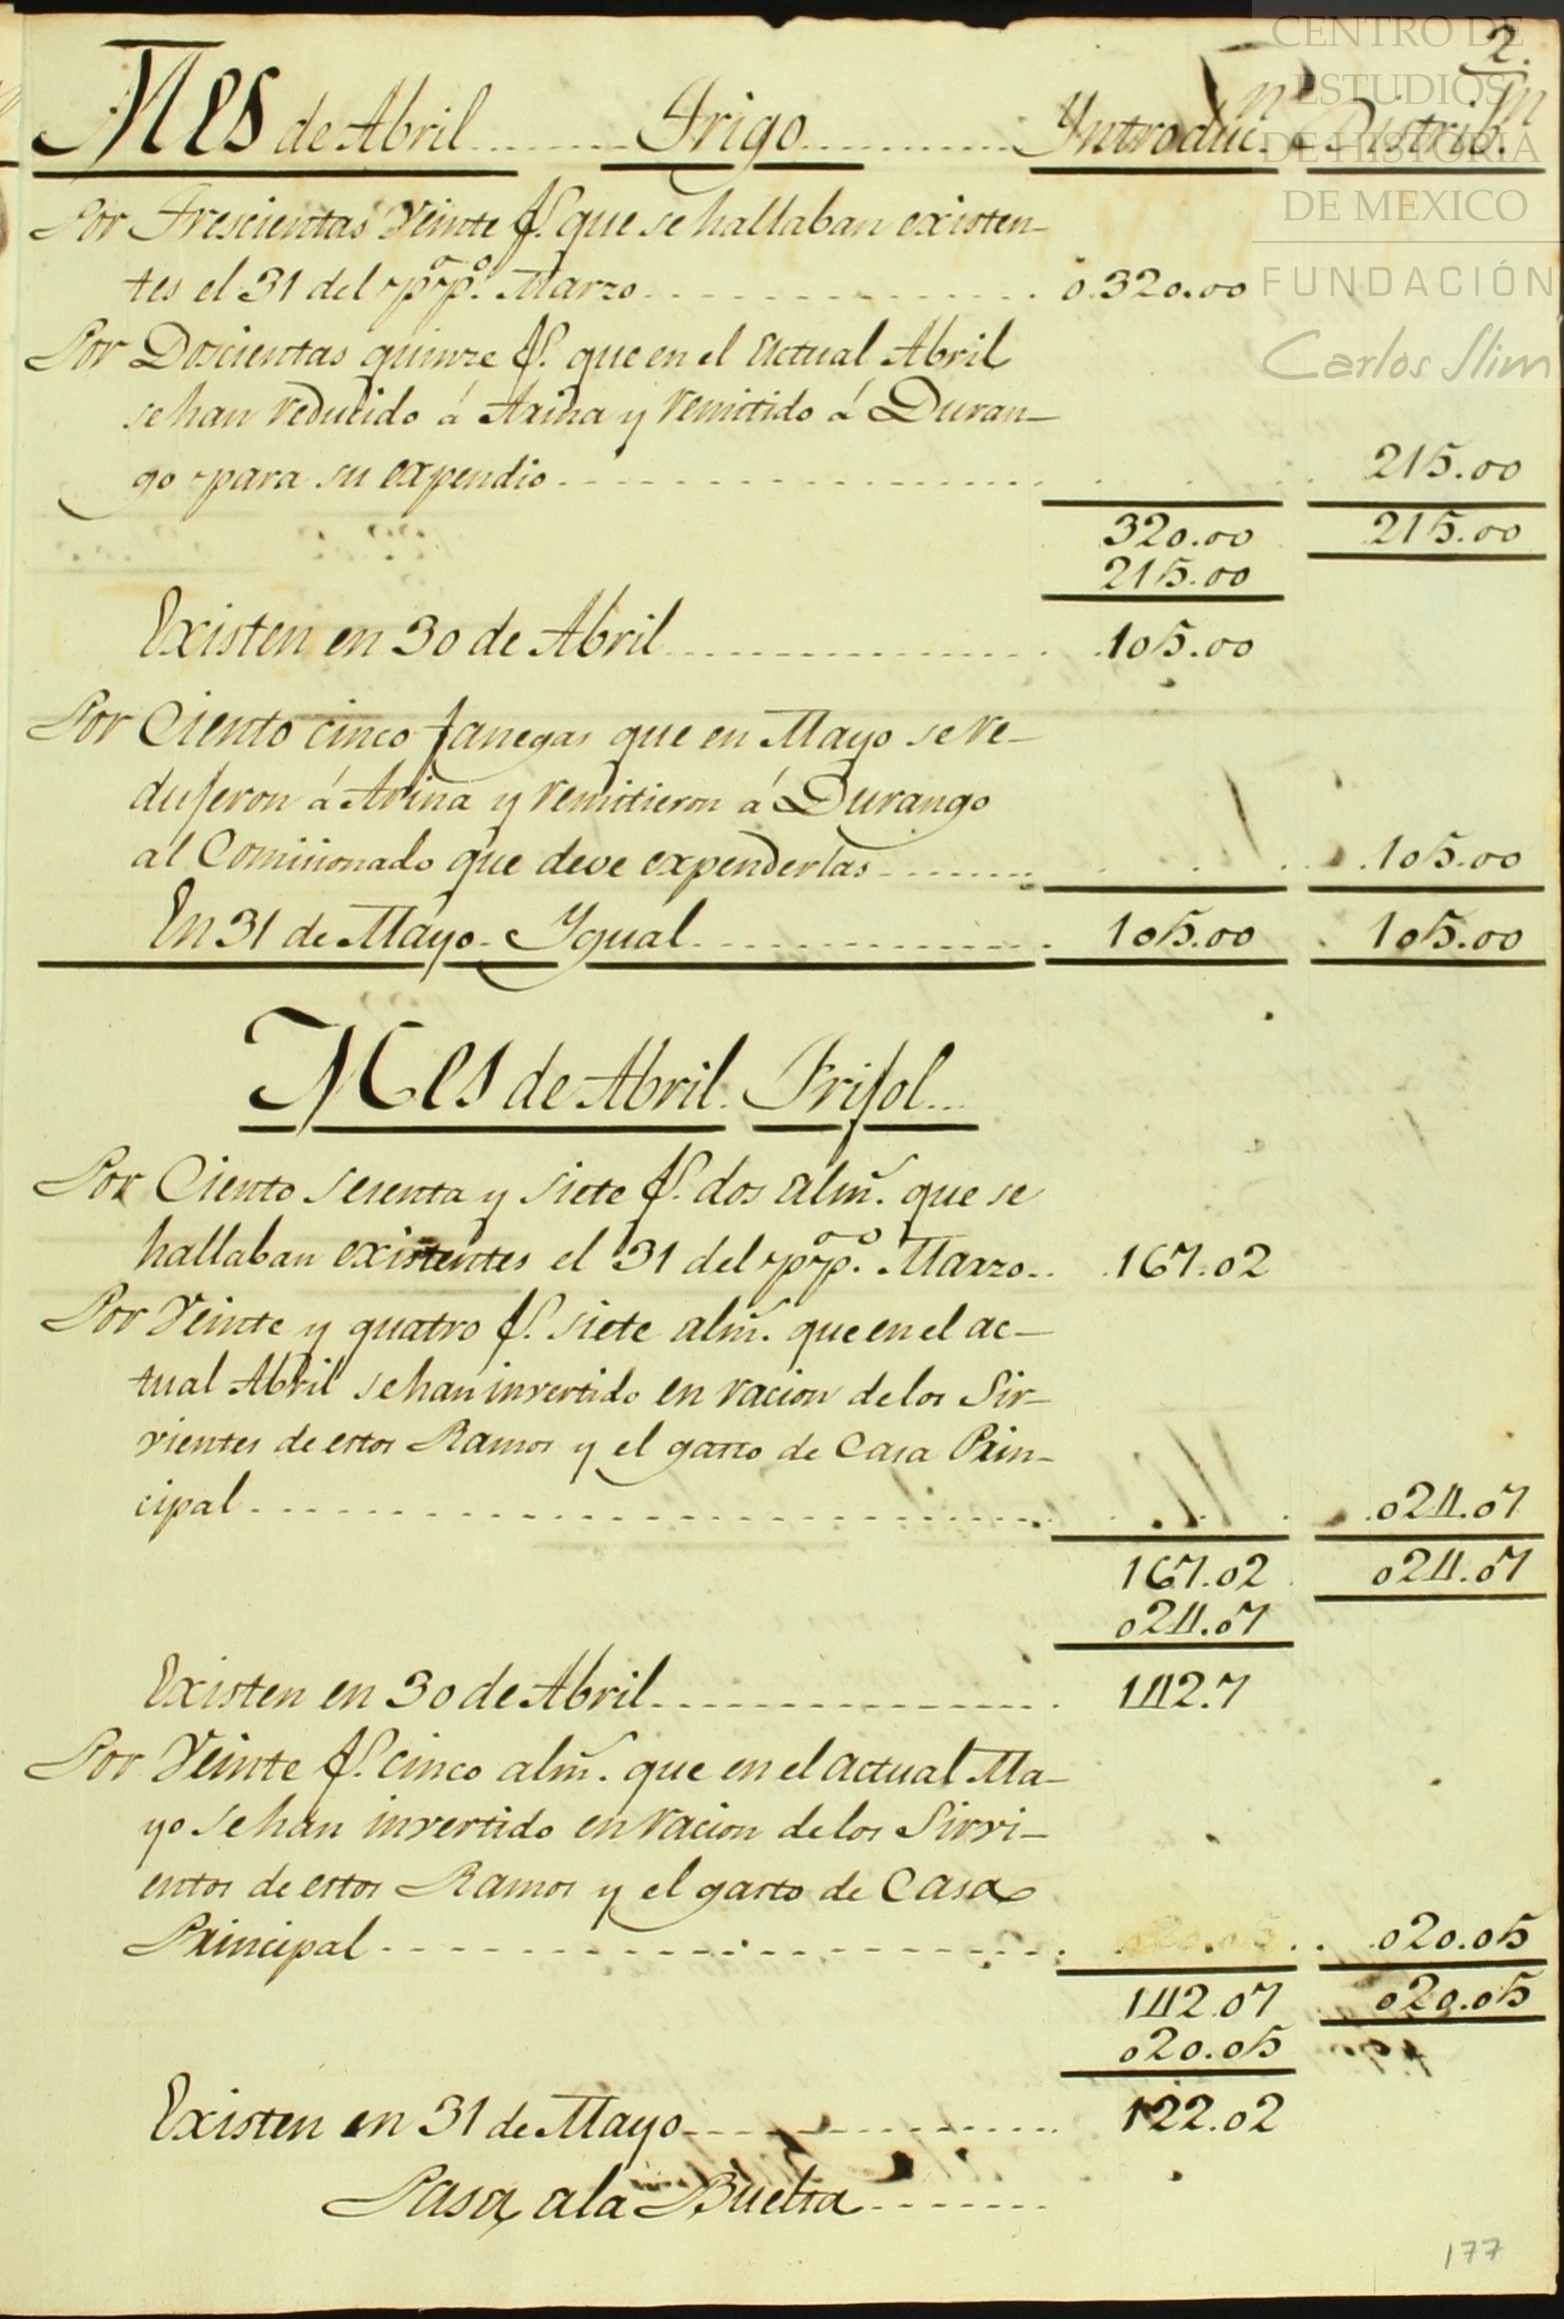 2.
Mes de Abril Trigo Yntroduc.n Distrib.n
Por Trescientas Veinte f.s que se hallaban existen-
tes el 31 del p.o p.o Marzo 0.320.00
Por Doscientas quinze f.s que en el Actual Abril
se han reducido á Arina y remitido á Duran-
go para su expendio 215.00
320.00 215.00
215.00
Existen en 30 de Abril 105.00
Por Ciento cinco fanegas que en Mayo se re-
dujeron á Arina y remitieron á Durango
al Comisionado que deve expenderlas 105.00
En 31 de Mayo Ygual 105.00 105.00
Mes de Abril. Frijol
Por Ciento sesenta y siete f.s dos alm.s que se
hallaban existentes el 31 del p.o p.o Marzo 167.02
Por Veinte y quatro f.s siete alm.s que en el ac-
tual Abril se han invertido en racion de los Sir-
vientes de estos Ramos y el gasto de Casa Prin-
cipal 024.07
167.02 024.07
024.07
Existen en 30 de Abril 142.7
Por Veinte f.s cinco alm.s que en el actual Ma-
yo se han invertido en racion de los Sirvi-
entos de estos Ramos y el gasto de Casa
Principal 020.05
142.07 020.05
020.05
Existen en 31 de Mayo 122.02
Pasa a la Buelta
177
CENTRO DE
ESTUDIOS
DE HISTORIA
DE MEXICO
FUNDACIÓN
Carlos Slim